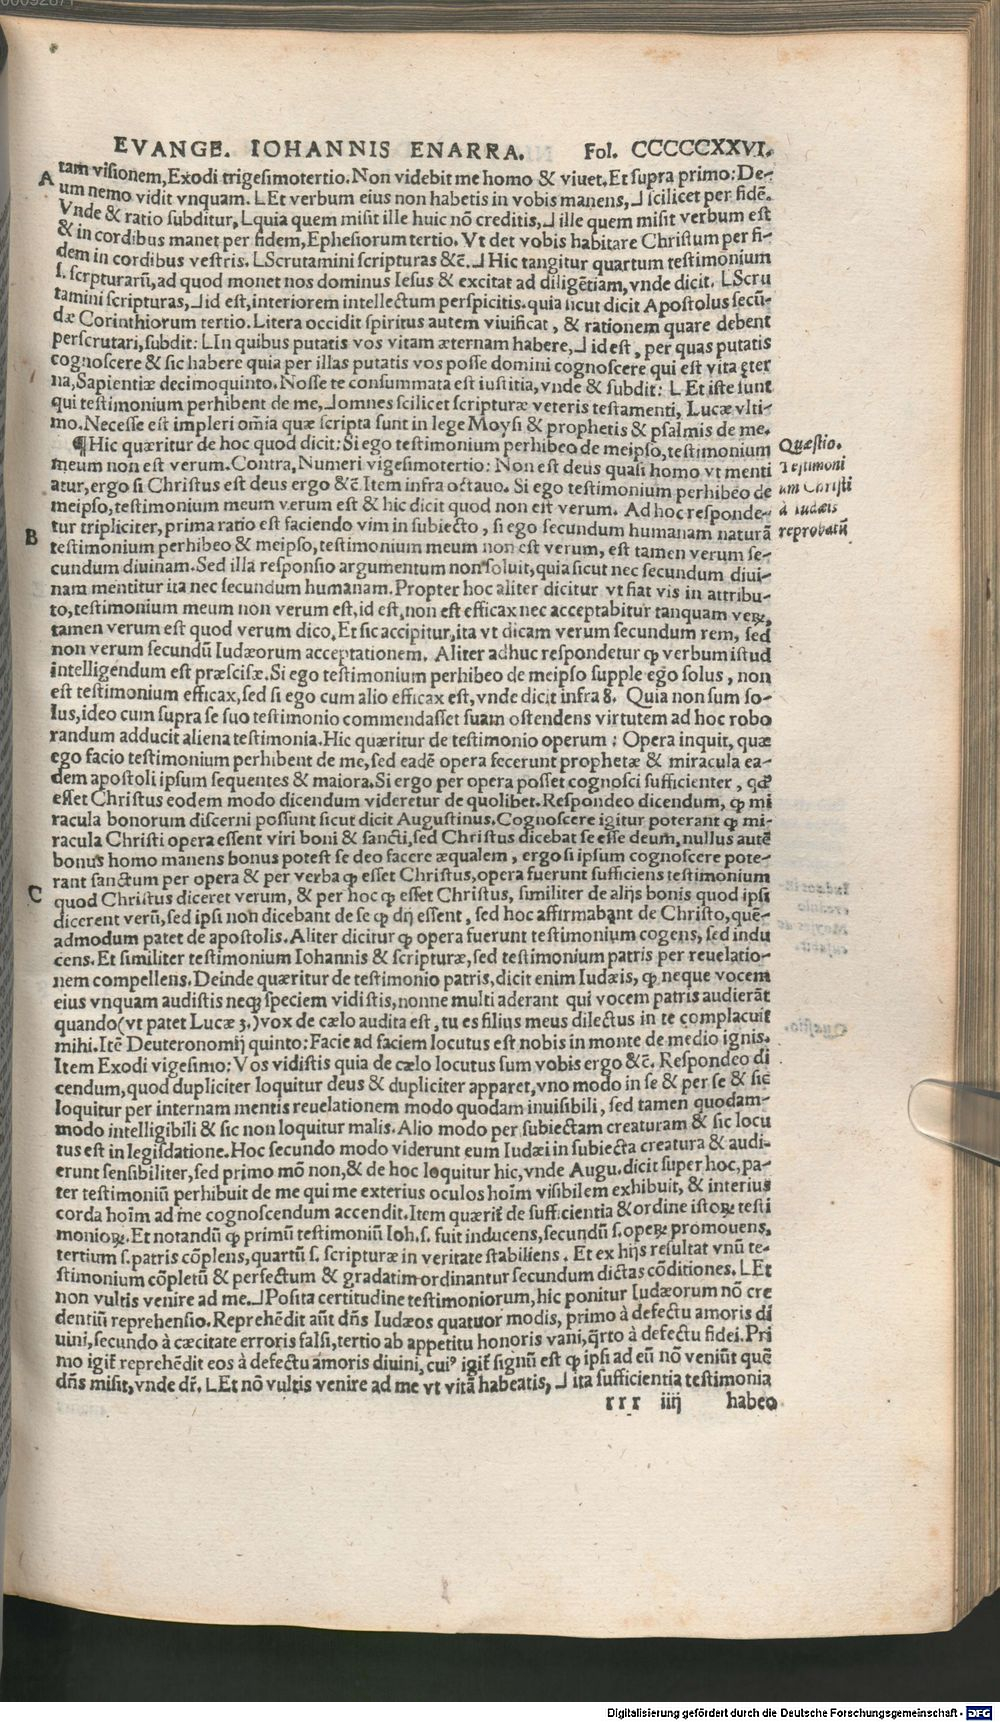 EVANGE. IOHANNIS ENARRA. Fol. CCCCCXXVI.
A tam visionem, Exodi trigesimotertio. Non videbit me homo & viuet. Et supra primo: De-
um nemo vidit vnquam. LEt verbum eius non habetis in vobis manens,⅃ scilicet per fidē.
Vnde & ratio subditur, Lquia quem misit ille huic nō creditis,⅃ ille quem misit verbum est
& in cordibus manet per fidem, Ephesiorum tertio. Vt det vobis habitare Christum per fi-
dem in cordibus vestris. LScrutamini scripturas &c̄.⅃ Hic tangitur quartum testimonium
s. scrpturarū, ad quod monet nos dominus Iesus & excitat ad diligētiam, vnde dicit. LScru
tamini scripturas,⅃ id est, interiorem intellectum perspicitis. quia sicut dicit Apostolus secū-
dæ Corinthiorum tertio. Litera occidit spiritus autem viuificat, & rationem quare debent
perscrutari, subdit: LIn quibus putatis vos vitam æternam habere,⅃ id est, per quas putatis
cognoscere & sic habere quia per illas putatis vos posse domini cognoscere qui est vita ęter
na, Sapientiæ decimoquinto. Nosse te consummata est iustitia, vnde & subdit: L Et iste sunt
qui testimonium perhibent de me,⅃ omnes scilicet scripturæ veteris testamenti, Lucæ vlti-
mo. Necesse est impleri om̄ia quæ scripta sunt in lege Moysi & prophetis & psalmis de me.
¶ Hic quæritur de hoc quod dicit: Si ego testimonium perhibeo de meipso, testimonium
meum non est verum. Contra, Numeri vigesimotertio: Non est deus quasi homo vt menti
atur, ergo si Christus est deus ergo &c̄. Item infra octauo. Si ego testimonium perhibeo de
meipso, testimonium meum verum est & hic dicit quod non est verum. Ad hoc responde-
tur tripliciter, prima ratio est faciendo vim in subiecto, si ego secundum humanam naturā
B testimonium perhibeo & meipso, testimonium meum non est verum, est tamen verum se-
cundum diuinam. Sed illa responsio argumentum non soluit, quia sicut nec secundum diui-
nam mentitur ita nec secundum humanam. Propter hoc aliter dicitur vt fiat vis in attribu-
to, testimonium meum non verum est, id est, non est efficax nec acceptabitur tanquam veꝝ,
tamen verum est quod verum dico. Et sic accipitur, ita vt dicam verum secundum rem, sed
non verum secundū Iudæorum acceptationem. Aliter adhuc respondetur ꝙ verbum istud
intelligendum est præscisæ. Si ego testimonium perhibeo de meipso supple ego solus, non
est testimonium efficax, sed si ego cum alio efficax est, vnde dicit infra 8. Quia non sum so-
lus, ideo cum supra se suo testimonio commendasset suam ostendens virtutem ad hoc robo
randum adducit aliena testimonia. Hic quæritur de testimonio operum: Opera inquit, quæ
ego facio testimonium perhibent de me, sed eadē opera fecerunt prophetæ & miracula ea-
dem apostoli ipsum sequentes & maiora. Si ergo per opera posset cognosci sufficienter, qđ
esset Christus eodem modo dicendum videretur de quolibet. Respondeo dicendum, ꝙ mi
racula bonorum discerni possunt sicut dicit Augustinus. Cognoscere igitur poterant ꝙ mi-
racula Christi opera essent viri boni & sancti, sed Christus dicebat se esse deum, nullus autē
bonus homo manens bonus potest se deo facere æqualem, ergo si ipsum cognoscere pote-
rant sanctum per opera & per verba ꝙ esset Christus, opera fuerunt sufficiens testimonium
C quod Christus diceret verum, & per hoc ꝙ esset Christus, similiter de alijs bonis quod ipsi
dicerent verū, sed ipsi non dicebant de se ꝙ dij essent, sed hoc affirmabant de Christo, quē-
admodum patet de apostolis. Aliter dicitur ꝙ opera fuerunt testimonium cogens, sed indu
cens. Et similiter testimonium Iohannis & scripturæ, sed testimonium patris per reuelatio-
nem compellens. Deinde quæritur de testimonio patris, dicit enim Iudæis, ꝙ neque vocem
eius vnquam audistis neqꝫ speciem vidistis, nonne multi aderant qui vocem patris audierāt
quando (vt patet Lucæ 3.) vox de cælo audita est, tu es filius meus dilectus in te complacuit
mihi. Itē Deuteronomij quinto: Facie ad faciem locutus est nobis in monte de medio ignis.
Item Exodi vigesimo: Vos vidistis quia de cælo locutus sum vobis ergo &c̄. Respondeo di
cendum, quod dupliciter loquitur deus & dupliciter apparet, vno modo in se & per se & sic
loquitur per internam mentis reuelationem modo quodam inuisibili, sed tamen quodam-
modo intelligibili & sic non loquitur malis. Alio modo per subiectam creaturam & sic locu
tus est in legisdatione. Hoc secundo modo viderunt eum Iudæi in subiecta creatura & audi-
erunt sensibiliter, sed primo mō non, & de hoc loquitur hic, vnde Augu. dicit super hoc, pa-
ter testimoniū perhibuit de me qui me exterius oculos hoīm visibilem exhibuit, & interius
corda hoīm ad me cognoscendum accendit. Item quærit̄ de sufficientia & ordine istoꝝ testi
monioꝝ. Et notandū ꝙ primū testimoniū Ioh. s. fuit inducens, secundū s. operꝝ promouens,
tertium s. patris cōplens, quartū s. scripturæ in veritate stabiliens. Et ex hijs resultat vnū te-
stimonium cōpletū & perfectum & gradatim ordinantur secundum dictas cōditiones. LEt
non vultis venire ad me.⅃ Posita certitudine testimoniorum, hic ponitur Iudæorum nō cre
dentiū reprehensio. Reprehēdit aūt dn̄s Iudæos quatuor modis, primo à defectu amoris di
uini, secundo à cæcitate erroris falsi, tertio ab appetitu honoris vani, q̄rto à defectu fidei. Pri
mo igit̄ reprehēdit eos à defectu amoris diuini, cuiꝰ igit̄ signū est ꝙ ipsi ad eū nō veniūt quē
dn̄s misit, vnde dr̄. LEt nō vultis venire ad me vt vitā habeatis,⅃ ita sufficientia testimonia
r r r iiij habeo
Quæstio.
Testimoni
um Christi
à Iudæis
reprobatū
Digitalisierung gefördert durch die Deutsche Forschungsgemeinschaft - DFG